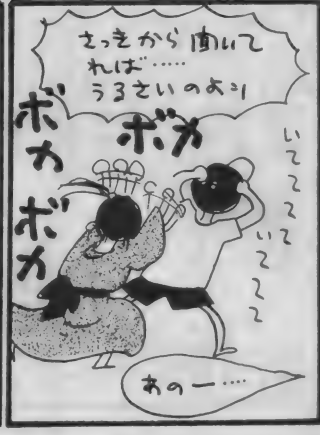 さっきから聞いて
れば……
うるさいのよ！
ボカ
ボカ
ボカ
いててててて
いてててて
あのー……